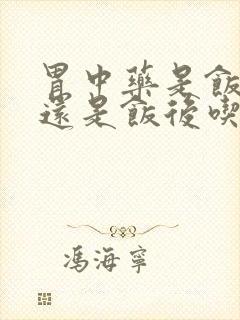 胃中藥是飯
還是飯後喫
馮海寧